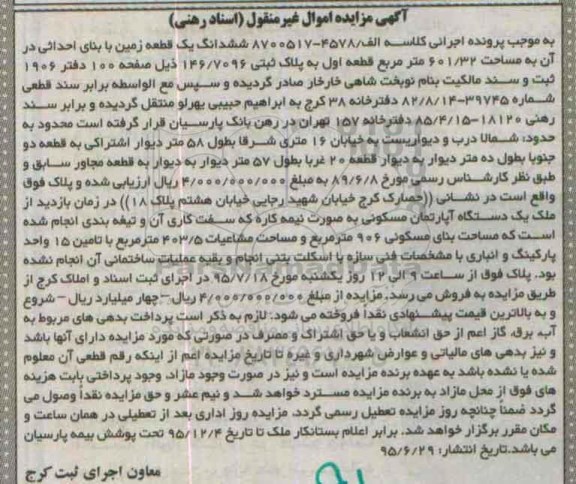 آگهی مزایده اموال غیرمنقول (اسناد رهنی)
به موجب پرونده اجرائی کلاسه الف/۴۵۷۸-۸۷۰۰۵۱۷ ششدانگ یک قطعه زمین با بنای احداثی در
آن به مساحت ۶۰۱/۳۲ متر مربع قطعه اول به پلاک ثبتی ۱۴۶/۷۰۹۶ ذیل صفحه ۱۰۰ دفتر ۱۹۰۶
ثبت و سند مالکیت بنام نوبخت شاهی خارخار صادر گردیده و سپس مع الواسطه برابر سند قطعی
شماره ۳۹۷۴۵-۸۲/۸/۱۴ دفترخانه ۳۸ کرج به ابراهیم حبیبی بهرلو منتقل گردیده و برابر سند
رهنی ۱۸۱۲۰-۸۵/۴/۱۵ دفترخانه ۱۵۷ تهران در رهن بانک پارسیان قرار گرفته است محدود به
حدود: شمالا درب و دیواریست به خیابان ۱۶ متری شرقا بطول ۵۸ متر دیوار اشتراکی به قطعه دو
جنوبا بطول ده متر دیوار به دیوار قطعه ۲۰ غربا بطول ۵۷ متر دیوار به دیوار به قطعه مجاور سابق و
طبق نظر کارشناس رسمی مورخ ۸۹/۶/۸ به مبلغ ۴/۰۰۰/۰۰۰/۰۰۰ ریال ارزیابی شده و پلاک فوق
واقع است در نشانی ((حصارک کرج خیابان شهید رجایی خیابان هشتم پلاک ۱۸)) در زمان بازدید از
ملک یک دستگاه آپارتمان مسکونی به صورت نیمه کاره که سفت کاری آن و تیغه بندی انجام شده
است که مساحت بنای مسکونی ۹۰۶ مترمربع و مساحت مشاعیات ۴۰۳/۵ مترمربع با تامین ۱۵ واحد
پارکینگ و انباری با مشخصات فنی سازه با اسکلت بتنی انجام و بقیه عملیات ساختمانی آن انجام نشده
بود. پلاک فوق از ساعت ۹ الی ۱۲ روز یکشنبه مورخ ۹۵/۷/۱۸ در اجرای ثبت اسناد و املاک کرج از
طریق مزایده به فروش می رسد. مزایده از مبلغ ۴/۰۰۰/۰۰۰/۰۰۰ ریال - چهار میلیارد ریال - شروع
و به بالاترین قیمت پیشنهادی نقداً فروخته می شود: لازم به ذکر است پرداخت بدهی های مربوط به
آب، برق، گاز اعم از حق انشعاب و یا حق اشتراک و مصرف در صورتی که مورد مزایده دارای آنها باشد
و نیز بدهی های مالیاتی و عوارض شهرداری و غیره تا تاریخ مزایده اعم از اینکه رقم قطعی آن معلوم
شده یا نشده باشد به عهده برنده مزایده است و نیز در صورت وجود مازاد، وجوه پرداختی بابت هزینه
های فوق از محل مازاد به برنده مزایده مسترد خواهد شد و نیم عشر و حق مزایده نقداً وصول می
گردد ضمنا چنانچه روز مزایده تعطیل رسمی گردد، مزایده روز اداری بعد از تعطیلی در همان ساعت و
مکان مقرر برگزار خواهد شد. برابر اعلام بستانکار ملک تا تاریخ ۹۵/۱۲/۴ تحت پوشش بیمه پارسیان
می باشد.تاریخ انتشار: ۹۵/۶/۲۹
معاون اجرای ثبت کرج